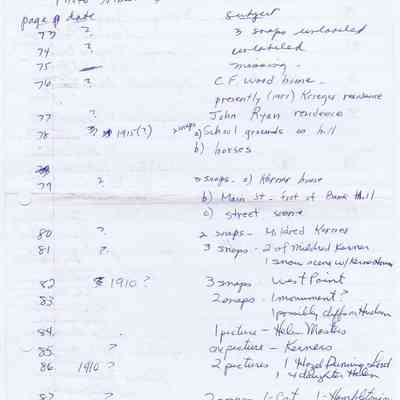 page # date subject
73 ? 3 snaps unlabeled
74 ? unlabeled
75 — missing -
76 ? C.F. Wood home -
presently (1981) Krieger residence
77 ? John Ryan residence
78 1915(?) 2 snaps a) School grounds on hill
b) horses
79 ? 3 snaps - a) Kerner home
b) Main St - foot of Bank Hill
c) street scene
80 ? 2 snaps - Mildred Kerner
81 ? 3 snaps - 2 of Mildred Kerner
1 snow scene w/ Kerner Home
82 1910 ? 3 snaps West Point
83 2 snaps - 1 monument ?
1 possibly cliff on Hudson
84. 1 picture - Helen Masters
85. ? picture - Kerners
86. 1910 ? 2 pictures 1 Hazel
1 daughter Helen
87 ? 1 - Cat 1 -